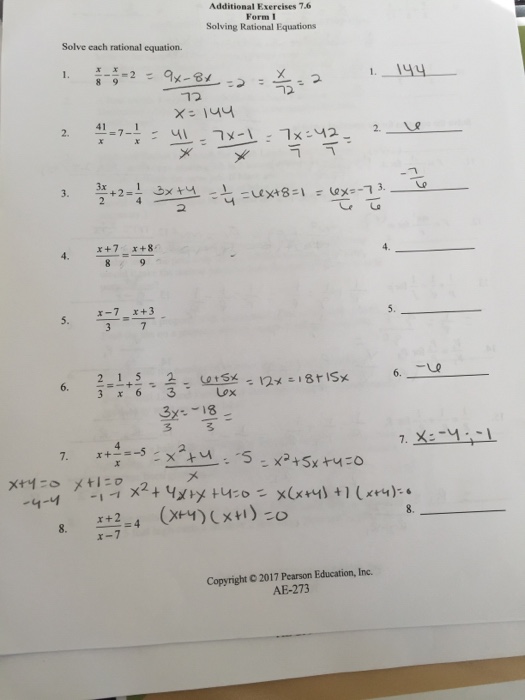 Additional Exercises 7.6
Form I
Solving Rational Equations
Solve each rational equation.
1. x/8 - x/9 = 2 = 9x-8x/72 = 2 = x/72 = 2 1. 144
x = 144
2. 41/x = 7 - 1/x = 41/x = 7x-1/x = 7x/7 = 42/7 = 2. 6
3. 3x/2 + 2 = 1/4 3x+4/2 = 1/4 = 6x+8=1 = 6x/6 = -7/6 3. -7/6
4. x+7/8 = x+8/9 4.
5. x-7/3 = x+3/7 5.
6. 2/3 = 1/x + 5/6 = 2/3 = 6+5x/6x = 12x = 18+15x 6. -6
3x/3 = -18/3 =
7. x + 4/x = -5 = x²+4/x = -5 = x²+5x+4=0 7. x=-4; -1
x+4=0 x+1=0
-4-4 -1-1 x²+4x+x+4=0 = x(x+4)+1(x+4)=0
8. x+2/x-7 = 4 (x+4)(x+1)=0 8.
Copyright © 2017 Pearson Education, Inc.
AE-273